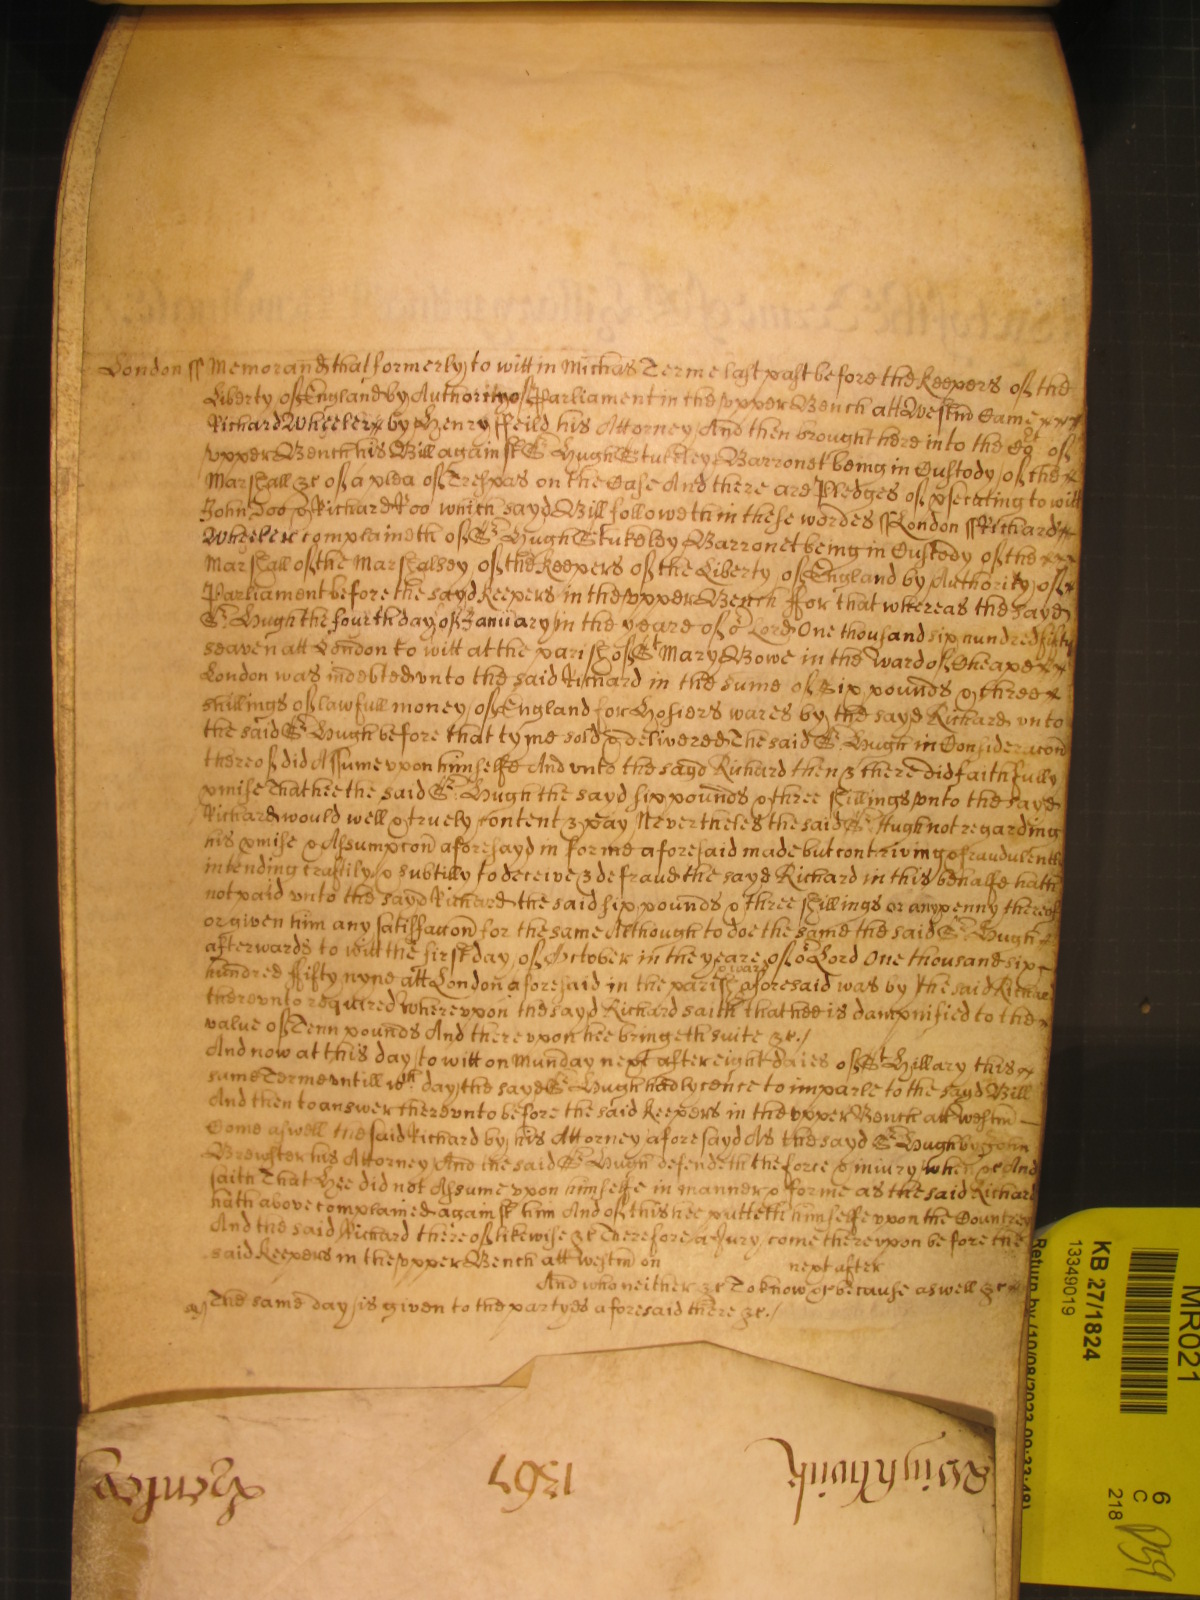 London ss Memorand that formerly to witt in Michas Terme last past before the Keepers of the
Liberty of England by Authority of Parliament in the upper Bench att Westm Came
Richard Wheeler by Henry ffeild his Attorney And then brought here into the Cort of
upper Bench his Bill against Sr Hugh Stukeley Barronet being in Custody of the
Marshall &c of a plea of Trespas on the Case And there are Pledges of psecuting to witt
John Doo & Richard Roo which sayd Bill followeth in these wordes ss London ss Richard
Wheeler complaineth of Sr Hugh Stukeley Barronet being in Custody of the
Marshall of the Marshalsey of the Keepers of the Liberty of England by Authority of
Parliament before the sayd Keepers in the upper Bench ffor that whereas the sayd
Sr Hugh the fourth day of January in the yeare of or Lord One thousand six hundred fifty
seaven att London to witt at the parish of St Mary Bowe in the Ward of Cheape
London was indebted unto the said Richard in the sume of six pounds & three
shillings of lawfull money of England for Hosiers wares by the sayd Richard unto
the said Sr Hugh before that tyme sold & delivered The said Sr Hugh in Consideracon
thereof did Assume upon himselfe And unto the sayd Richard then & there did faithfully
pmise That hee the said Sr Hugh the sayd six pounds & three shillings unto the sayd
Richard would well & truely content & pay Nevertheles the said Sr Hugh not regarding
his pmise & Assumpcon aforesayd in forme aforesaid made but contriving & fraudulently
intending craftily & subtilly to deceive & defraud the sayd Richard in this behalfe hath
not paid unto the sayd Richard the said six pounds & three shillings or any penny thereof
or given him any satisfaccon for the same Although to doe the same the said Sr Hugh
afterwards to witt the first day of October in the yeare of or Lord One thousand six
hundred ffifty nyne att London aforesaid in the parish & ward aforesaid was by the said Richard
thereunto required whereupon the sayd Richard saith that hee is dampnified to the
value of Tenn pounds And thereupon hee bringeth suite &c./
And now at this day to witt on Munday next after eight daies of St Hillary this
same Terme untill wch day the sayd Sr Hugh had lycence to imparle to the sayd Bill
And then to answer thereunto before the said Keepers in the upper Bench att Westm
Come aswell the said Richard by his Attorney aforesayd As the sayd Sr Hugh by John
Brewster his Attorney And the said Sr Hugh defendeth the force & iniury when &c And
saith That Hee did not Assume upon himselfe in manner & forme as the said Richard
hath above complained against him And of this hee putteth himselfe upon the Countrey
And the said Richard thereof likewise &c Therefore a Jury come thereupon before the
said Keepers in the upper Bench att Westm on next after
And who neither &c To know &c because aswell &c
The same day is given to the partyes aforesaid there &c./
1567
MR021
KB 27/1824
13349019
Return by (10/08/2023 09:33:48)
6
C
218